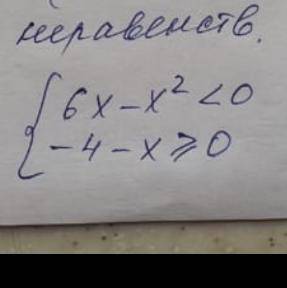 неравенств.
6x-x²<0
-4-x⩾0